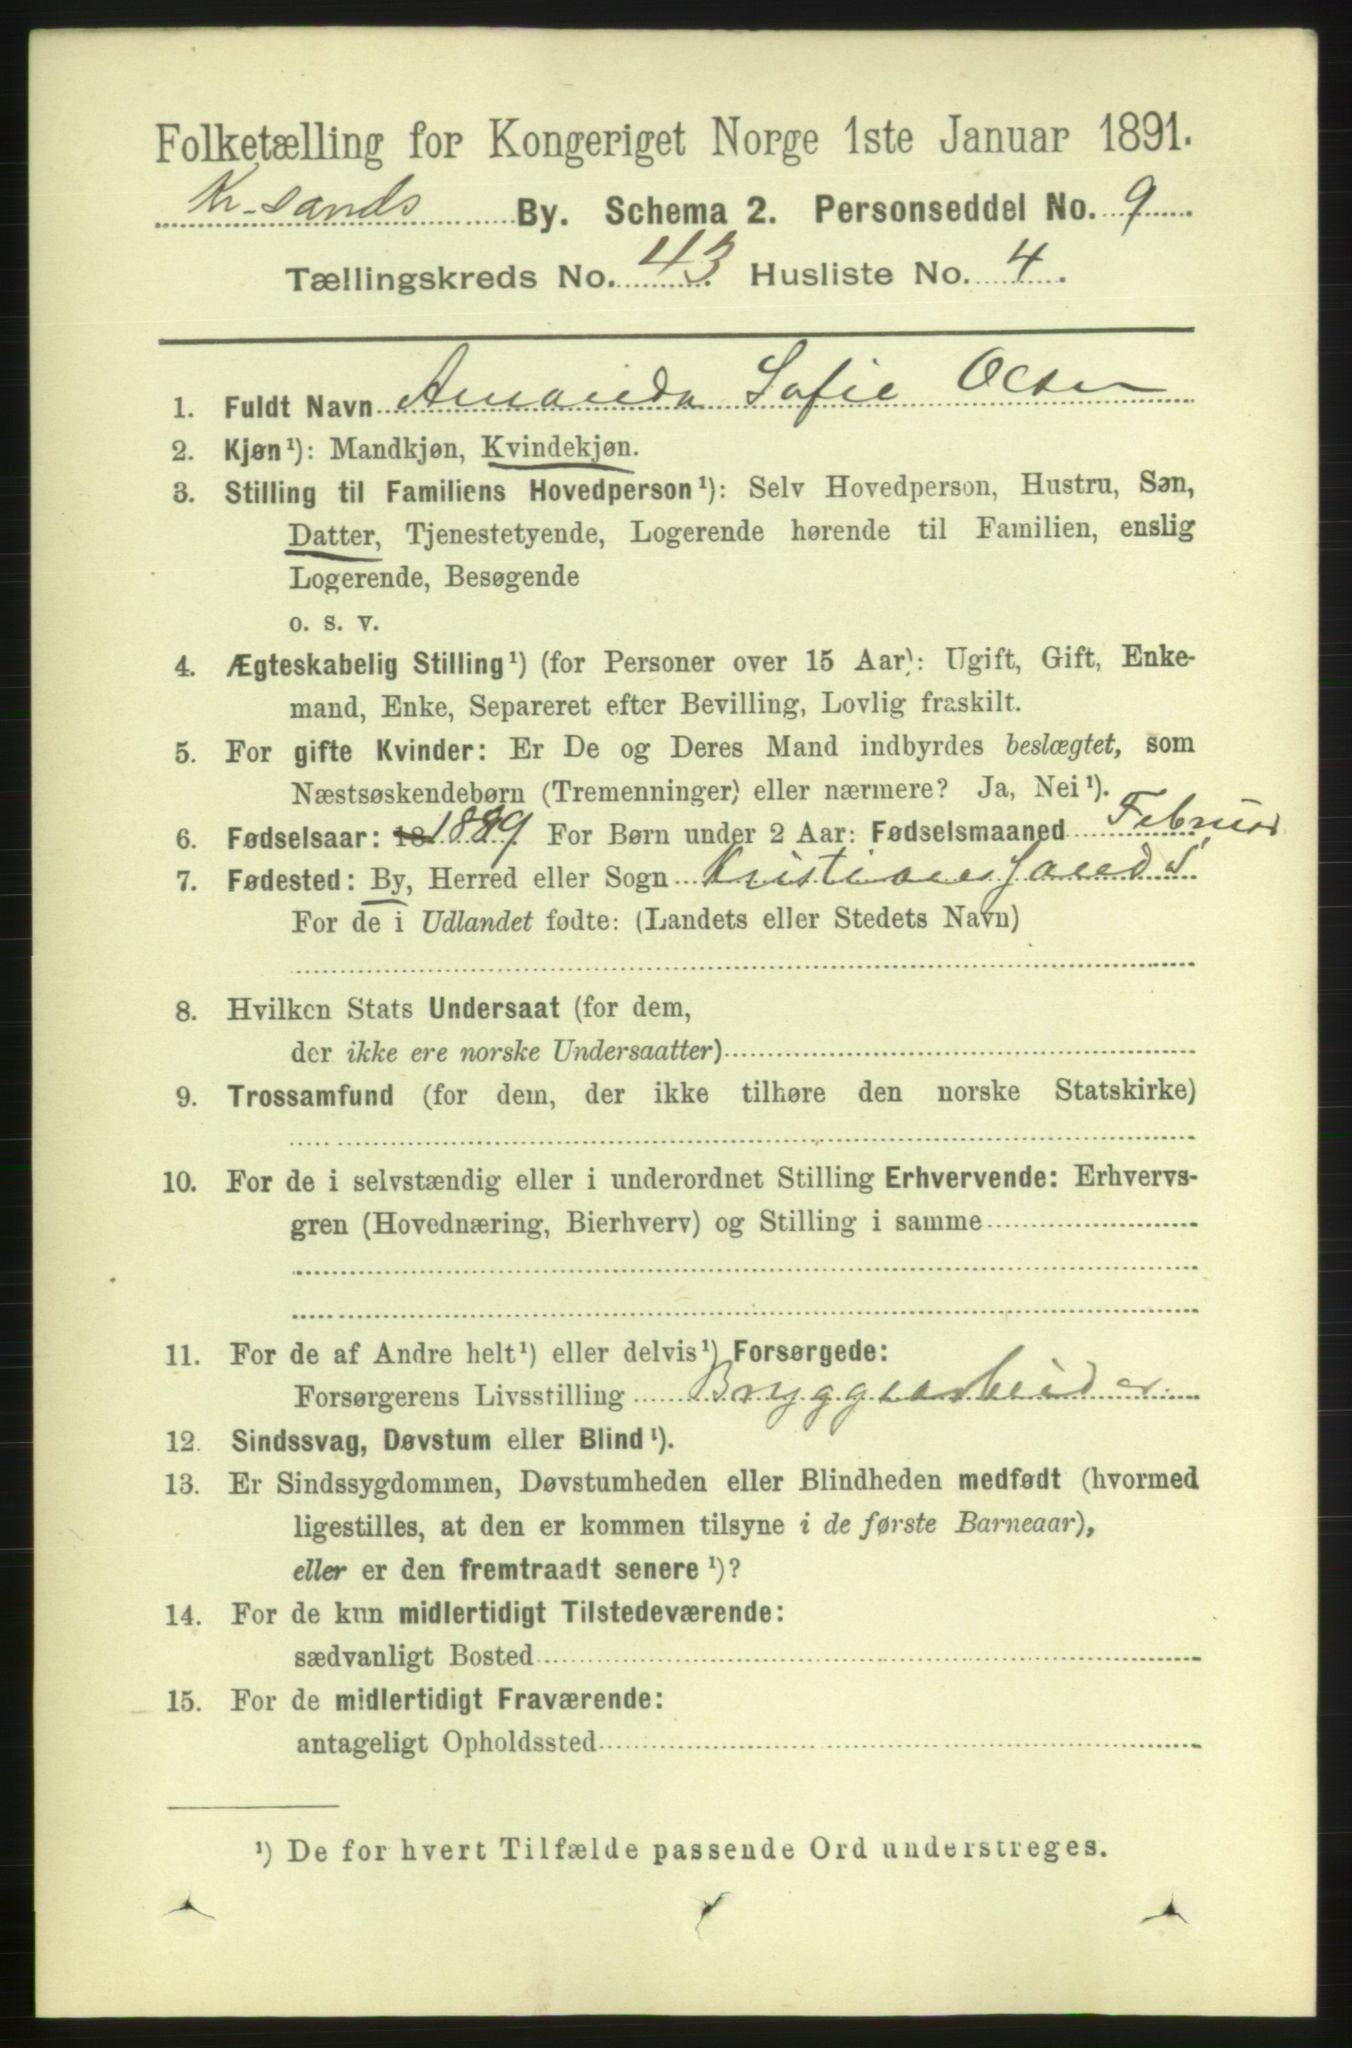 Folketælling for Kongeriget Norge 1ste Januar 1891.
Kr-sands By. Schema 2. Personseddel No. 9
Tællingskreds No. 43 Husliste No. 4.
1. Fuldt Navn Amanda Sofie Olsen
2. Kjøn¹): Mandkjøn, Kvindekjøn.
3. Stilling til Familiens Hovedperson¹): Selv Hovedperson, Hustru, Søn,
Datter, Tjenestetyende, Logerende hørende til Familien, enslig
Logerende, Besøgende
o. s. v.
4. Ægteskabelig Stilling¹) (for Personer over 15 Aar): Ugift, Gift, Enke-
mand, Enke, Separeret efter Bevilling, Lovlig fraskilt.
5. For gifte Kvinder: Er De og Deres Mand indbyrdes beslægtet, som
Næstsøskendebørn (Tremenninger) eller nærmere? Ja, Nei¹).
6. Fødselsaar: 18 1889 For Børn under 2 Aar: Fødselsmaaned Februar
7. Fødested: By, Herred eller Sogn Kristianssands
For de i Udlandet fødte: (Landets eller Stedets Navn)
8. Hvilken Stats Undersaat (for dem,
der ikke ere norske Undersaatter)
9. Trossamfund (for dem, der ikke tilhøre den norske Statskirke)
10. For de i selvstændig eller i underordnet Stilling Erhvervende: Erhvervs-
gren (Hovednæring, Bierhverv) og Stilling i samme
11. For de af Andre helt¹) eller delvis¹) Forsørgede:
Forsørgerens Livsstilling Bryggearbeider
12. Sindssvag, Døvstum eller Blind¹).
13. Er Sindssygdommen, Døvstumheden eller Blindheden medfødt (hvormed
ligestilles, at den er kommen tilsyne i de første Barneaar),
eller er den fremtraadt senere¹)?
14. For de kun midlertidigt Tilstedeværende:
sædvanligt Bosted
15. For de midlertidigt Fraværende:
antageligt Opholdssted
¹) De for hvert Tilfælde passende Ord understreges.